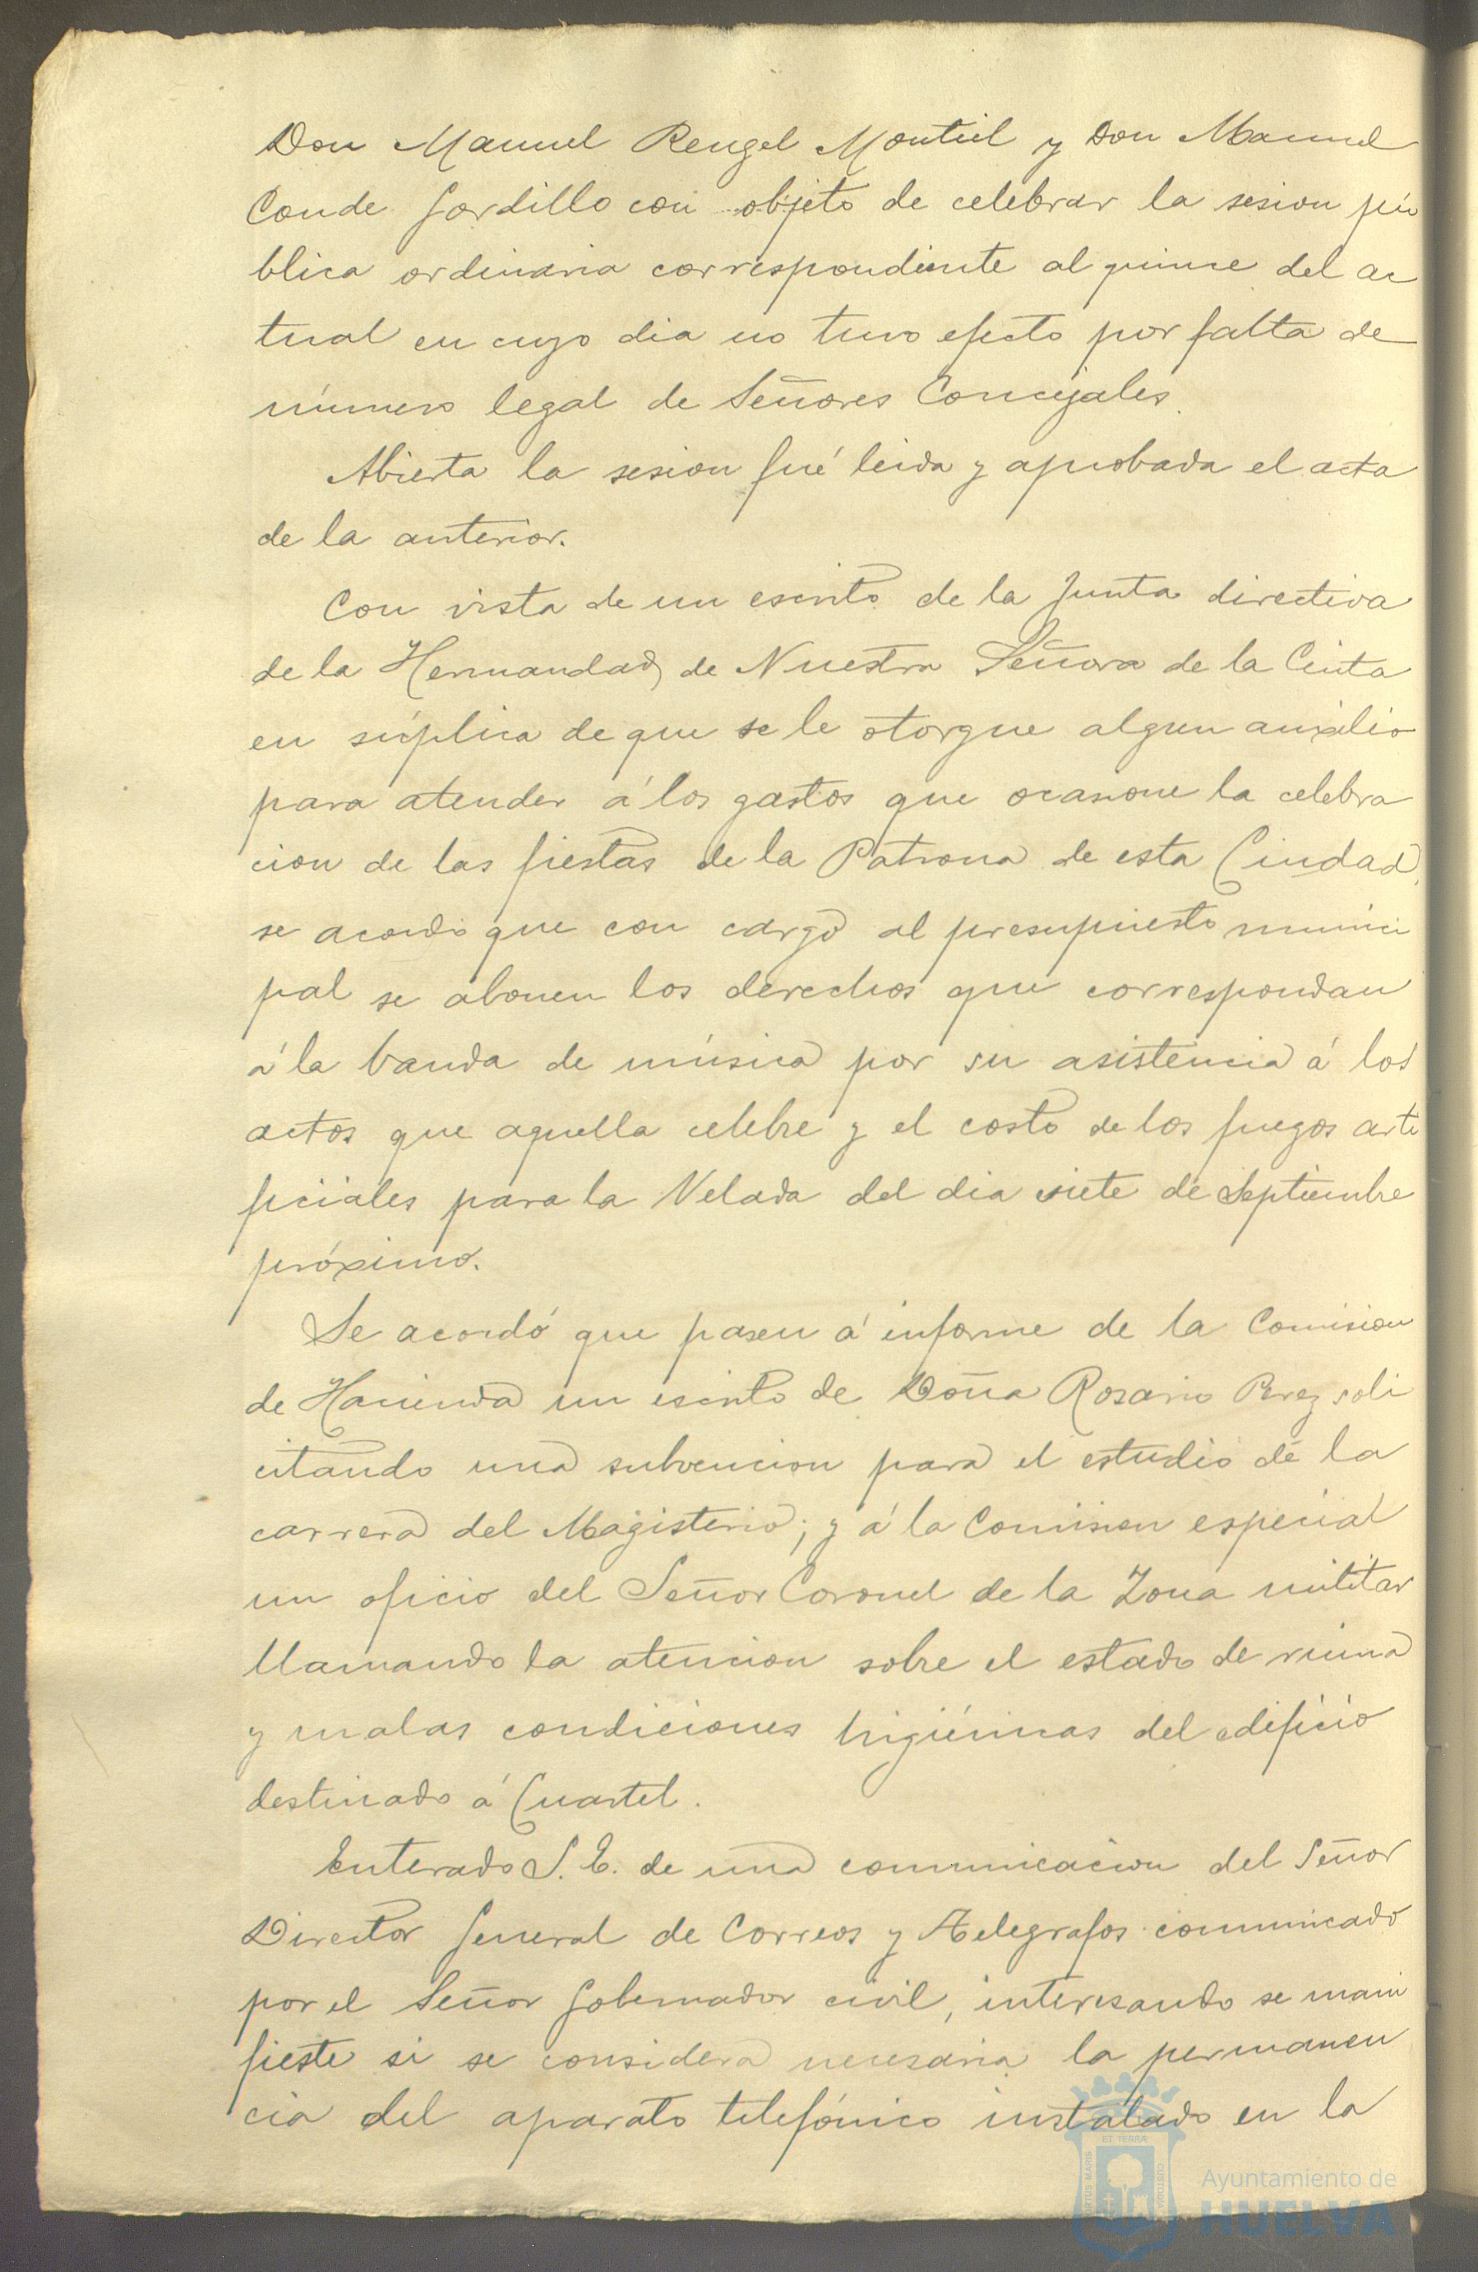 Don Manuel Rengel Montiel y Don Manuel
Conde Gordillo con objeto de celebrar la sesion pú
blica ordinaria correspondiente al quince del ac
tual en cuyo dia no tuvo efecto por falta de
número legal de Señores Concejales.
Abierta la sesion fué leida y aprobada el acta
de la anterior.
Con vista de un escrito de la Junta directiva
de la Hermandad de Nuestra Señora de la Cinta
en súplica de que se le otorgue algun auxilio
para atender á los gastos que ocasione la celebra
cion de las fiestas de la Patrona de esta Ciudad,
se acordó que con cargo al presupuesto munici
pal se abonen los derechos que correspondan
á la banda de música por su asistencia á los
actos que aquella celebre y el costo de los fuegos arti
ficiales para la Velada del dia siete de Septiembre
próximo.
Se acordó que pasen á informe de la Comision
de Hacienda un escrito de Doña Rosario Perez soli
citando una subvencion para el estudio de la
carrera del Magisterio; y á la Comision especial
un oficio del Señor Coronel de la Zona militar
llamando la atencion sobre el estado de ruina
y malas condiciones higiénicas del edificio
destinado á Cuartel.
Enterado S. E. de una comunicacion del Señor
Director General de Correos y Telegrafos comunicado
por el Señor Gobernador civil, interesando se mani
fieste si se considera necesaria la permanen
cia del aparato telefónico instalado en la
ET TERRA
PORTUS MARIS
CUSTODIA
Ayuntamiento de
HUELVA